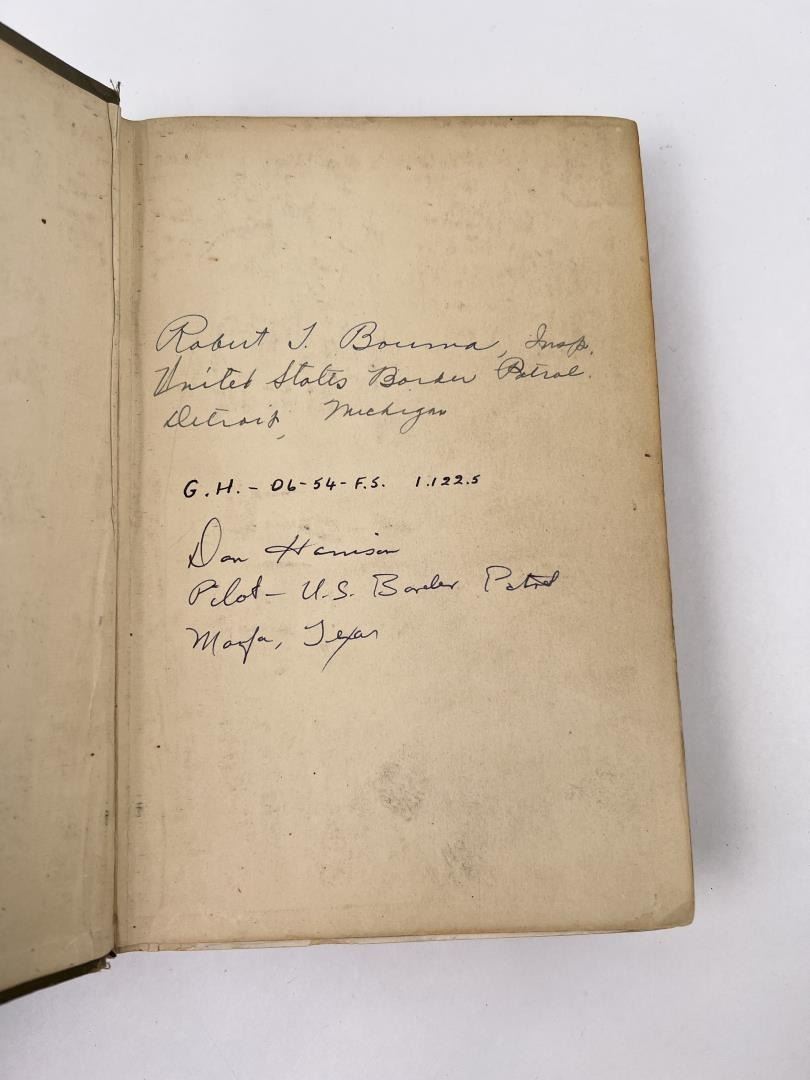 Robert J. Bouma, Insp.
United States Border Patrol.
Detroit, Michigan
G.H. - D6-54-F.S. 1.122.5
Don Harrison
Pilot - U.S. Border Patrol
Marfa, Texas